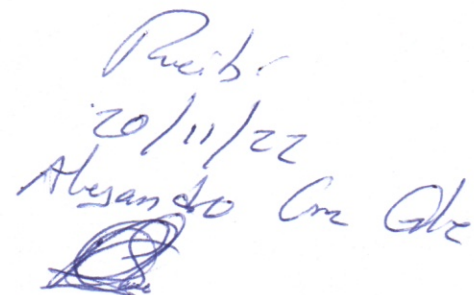 Recibí
20/11/22
Alejandro Cruz